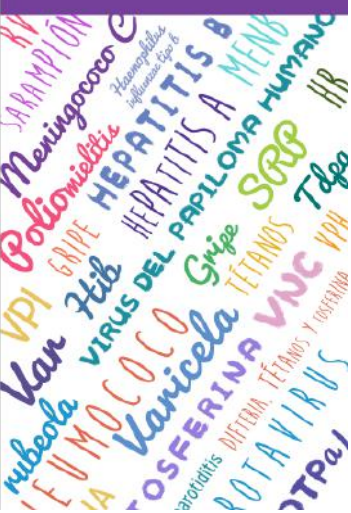 RV
SARAMPIÓN
Meningococo C
Haemophilus
influenzae tipo b
HEPATITIS B
MENB
Poliomielitis
HEPATITIS A
VIRUS DEL PAPILOMA HUMANO
HB
GRIPE
SRP
Tdpa
VPI
Hib
Gripe
TÉTANOS
VPH
Van
VNC
rubeola
NEUMOCOCO
Varicela
TOSFERINA
DIFTERIA, TÉTANOS Y TOSFERINA
Parotiditis
ROTAVIRUS
DTPa/